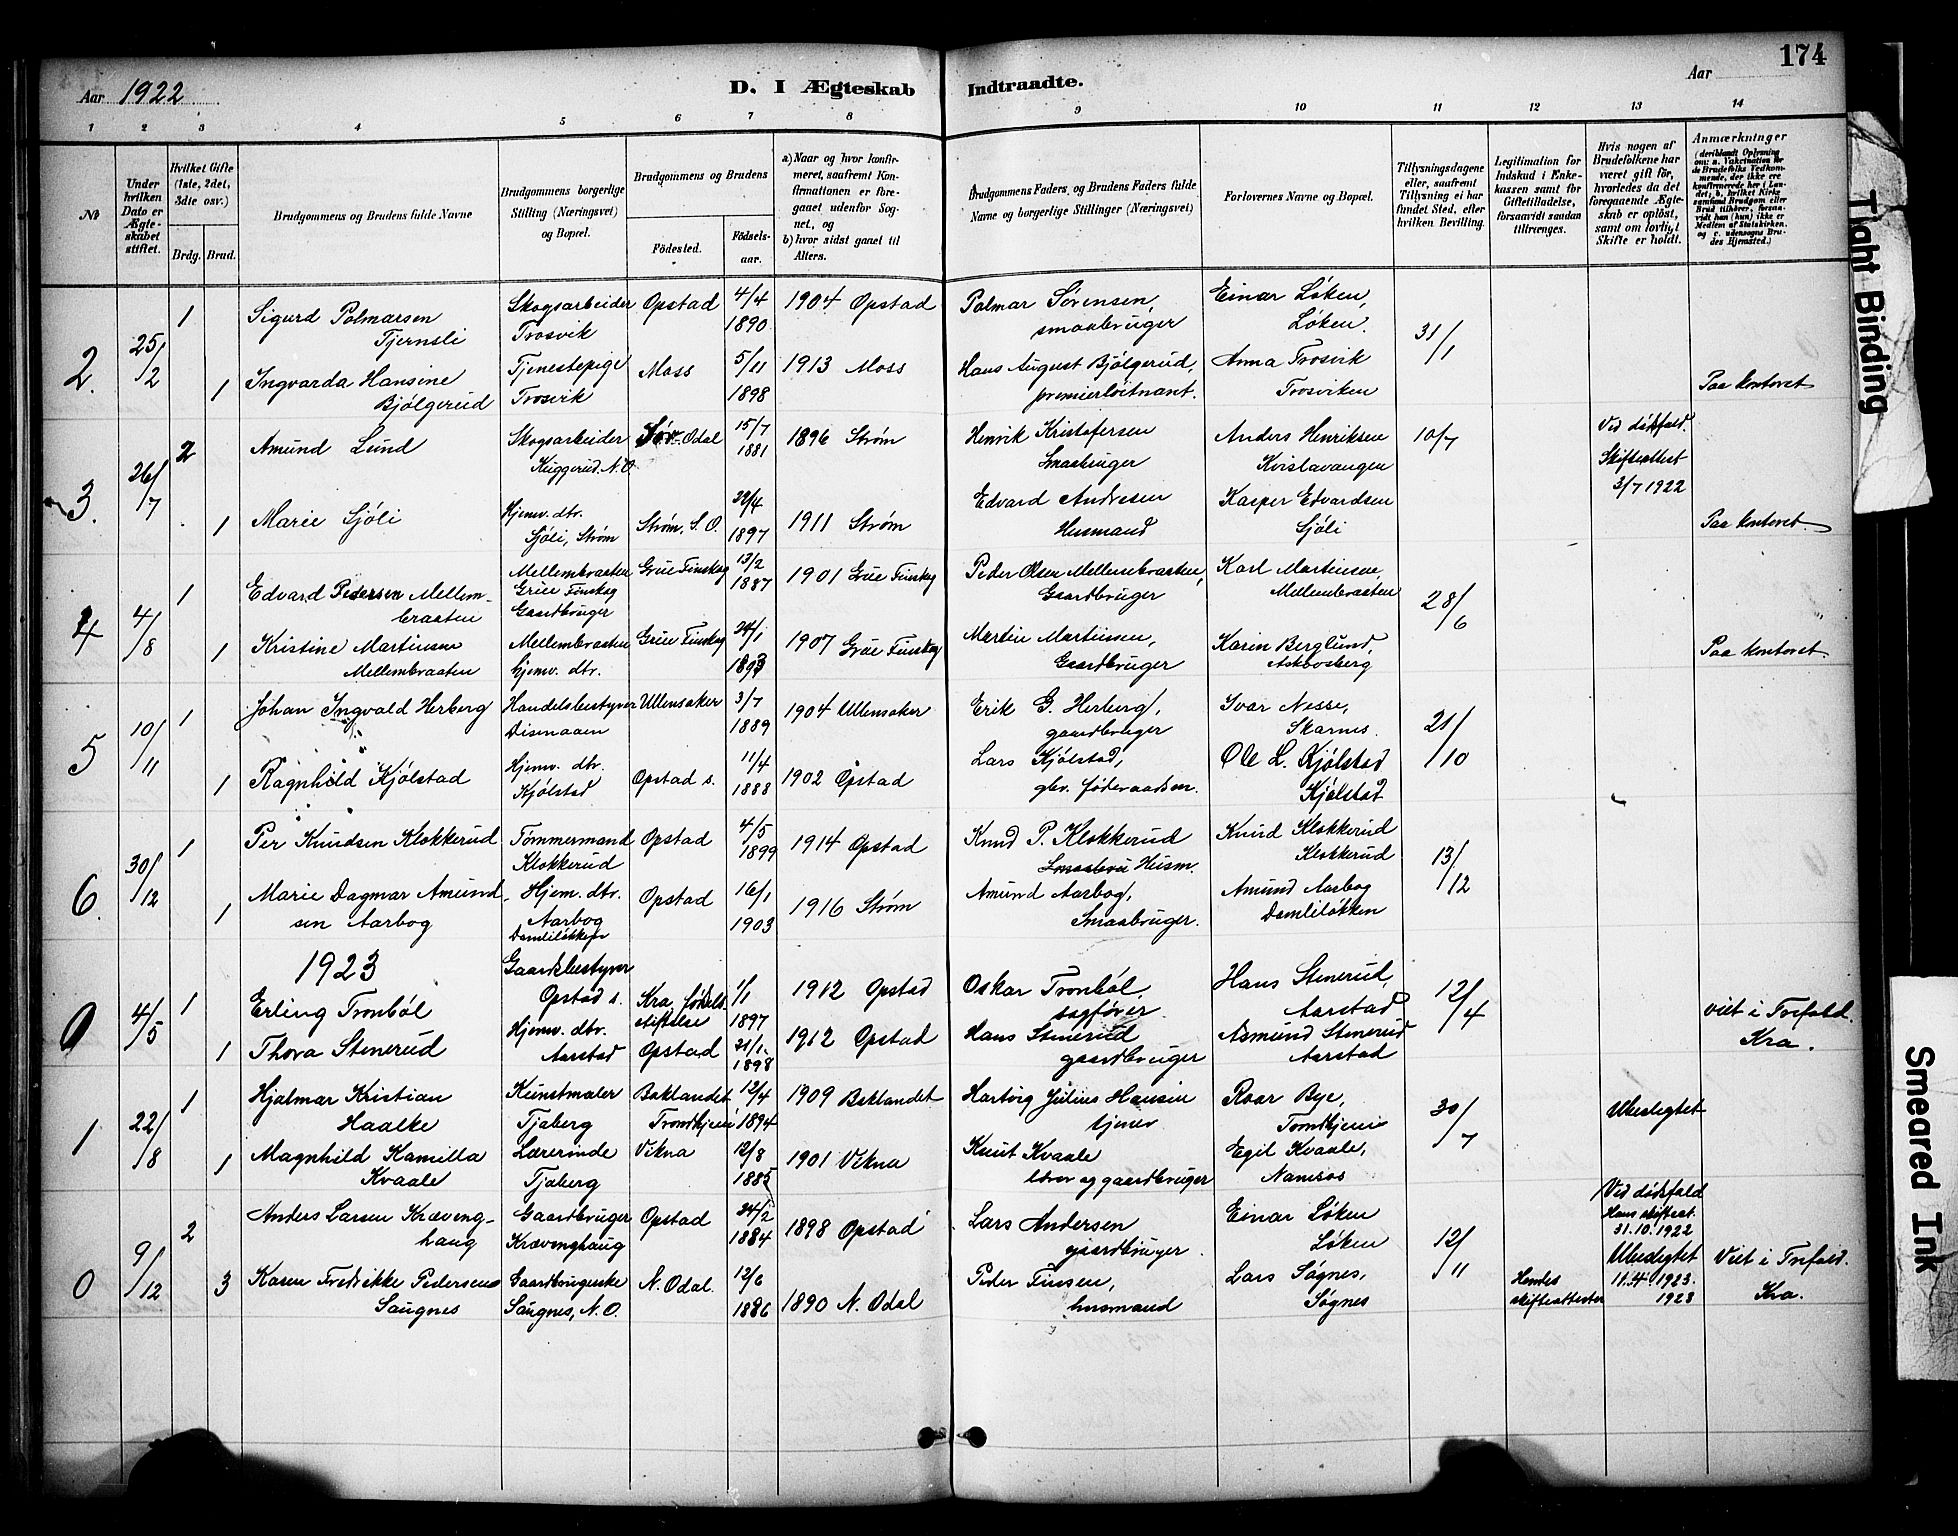 174
Aar 1922
D. I Ægteskab Indtraadte.
Aar
1 2 3 4 5 6 7 8 9 10 11 12 13 14
No
Under hvilken Dato er Ægteskabet stiftet.
Hvilket Gifte (1ste, 2det, 3die osv.)
Brdg. Brud.
Brudgommens og Brudens fulde Navne
Brudgommens borgerlige Stilling (Næringsvei) og Bopæl.
Brudgommens og Brudens
Fødested.
Fødselsaar.
a) Naar og hvor konfirmeret, saafremt Konfirmationen er foregaaet udenfor Sognet, og
b) hvor sidst gaaet til Alters.
Brudgommens Faders, og Brudens Faders fulde Navne og borgerlige Stillinger (Næringsvei)
Forlovernes Navne og Bopæl.
Tillysningsdagene eller, saafremt Tillysning ei har fundet Sted, efter hvilken Bevilling.
Legitimation for Indskud i Enkekassen samt for Giftetilladelse, forsaavidt saadan tiltrænges.
Hvis nogen af Brudefolkene har været gift før, hvorledes da det foregaaende Ægteskab er opløst, samt om lovligt Skifte er holdt.
Anmærkninger
(deriblandt Oplysning om: a. Vakcination for de Brudefolks Vedkommende, der ikke ere konfirmerede her i Landet; b. hvilket Kirkesamfund Brudgom eller Brud tilhører, forsaavidt han (hun) ikke er Medlem af Statskirken, og c. udensogns Brudes Hjemsted.)
2. 25/2 1 Sigurd Palmarsen Tjernsli Skogsarbeider Trosvik Opstad 4/4 1890 1904 Opstad Palmar Sørensen, smaabruger Einar Løken, Løken. 31/1
1 Ingvarda Hansine Bjølgerud Tjenestepige Trosvik Moss 5/11 1898 1913 Moss Hans August Bjølgerud, premierløitnant. Anna Trosvik Trosviken Paa kontoret
3. 26/7 2 Amund Lund Skogsarbeider Kuggerud, N.O. Sør-Odal 15/7 1881 1896 Strøm Henrik Kristofersen Smaabruger Anders Henriksen Kvislavangen 10/7 Ved dødsfald. Skifteattest 3/7 1922
1 Marie Sjøli Hjemv. dtr. Sjøli, Strøm Strøm, S.O. 22/4 1897 1911 Strøm Edvard Andresen Husmand Kasper Edvardsen Sjøli Paa kontoret
4 4/8 1 Edvard Pedersen Mellembraaten Mellembraaten Grue Finskog Gaardbruger Grue Finskog 13/2 1887 1901 Grue Finskog Peder Olsen Mellembraaten, Gaardbruger Karl Martinsen, Mellembraaten 28/6
1 Kristine Martinsen Mellembraaten Mellembraaten hjemv. dtr. Grue Finskog 24/1 1893 1907 Grue Finskog Martin Martinsen, Gaardbruger Karin Berglund, Askosberg Paa kontoret.
5 10/11 1 Johan Ingvald Herberg Handelsbestyrer Disenaaen Ullensaker 3/7 1889 1904 Ullensaker Erik G. Herberg, gaardbruger Ivar Nesse, Skarnes. 21/10
1 Ragnhild Kjølstad Hjemv. dtr. Kjølstad Opstad s. 11/4 1888 1902 Opstad Lars Kjølstad, Ole L. Kjølstad Kjølstad
6. 30/12 1 Per Knudsen Klokkerud Tømmermand Klokkerud Opstad 4/5 1899 1914 Opstad Knud P. Klokkerud Husm. Knud Klokkerud Klokkerud 13/12
1 Marie Dagmar Amundsen Aarbog Hjem. dtr. Aarbog Damliløkken Opstad 16/1 1903 1916 Strøm Amund Aarbog, Smaabruger. Amund Aarbog Damliløkken
1923
0 4/5 1 Erling Tronbøl Gaardsbestyrer Opstad s. Kra. Fødselsstiftelse 1/1 1897 1912 Opstad Oskar Tronbøl, sagfører. Hans Stenerud, Aarstad 12/4 viet i Trefold. Kra.
1 Thora Stenerud Hjemv. dtr. Aarstad Opstad 21/1 1898 1912 Opstad Hans Stenerud gaardbruger Asmund Stenerud Aarstad
1 22/8 1 Hjalmar Kristian Haalke Kunstmaler Tjaberg Baklandet Trondhjem 12/4 1894 1909 Baklandet Hartvig Julius Hansen tjener Roar Bye, Trondhjem 30/7 Ubeslegtet
1 Magnhild Kamilla Kvaale Lærerinde Tjaberg Vikna 12/8 1885 1901 Vikna Knut Kvaale lærer og gaardbruger Egil Kvaale, Namsos
0 9/12 2 Anders Larsen Krævenghaug Gaardbruger Krævenghaug Opstad 24/2 1884 1898 Opstad Lars Andersen gaardbruger. Einar Løken Løken 12/11 Ved dødsfald Hans skifteat. 31.10.1922 Ubeslegtet Viet i Trefold. Kra.
3 Karen Fredrikke Pedersen Saugnes Gaardbrugerske Saugnes, N.O. N. Odal. 12/6 1886 1890 N. Odal Peder Finsen, husmand Lars Søgnes, Søgnes Hendes skifteattester 11.4.1923. 1923
Tight Binding
Smeared Ink